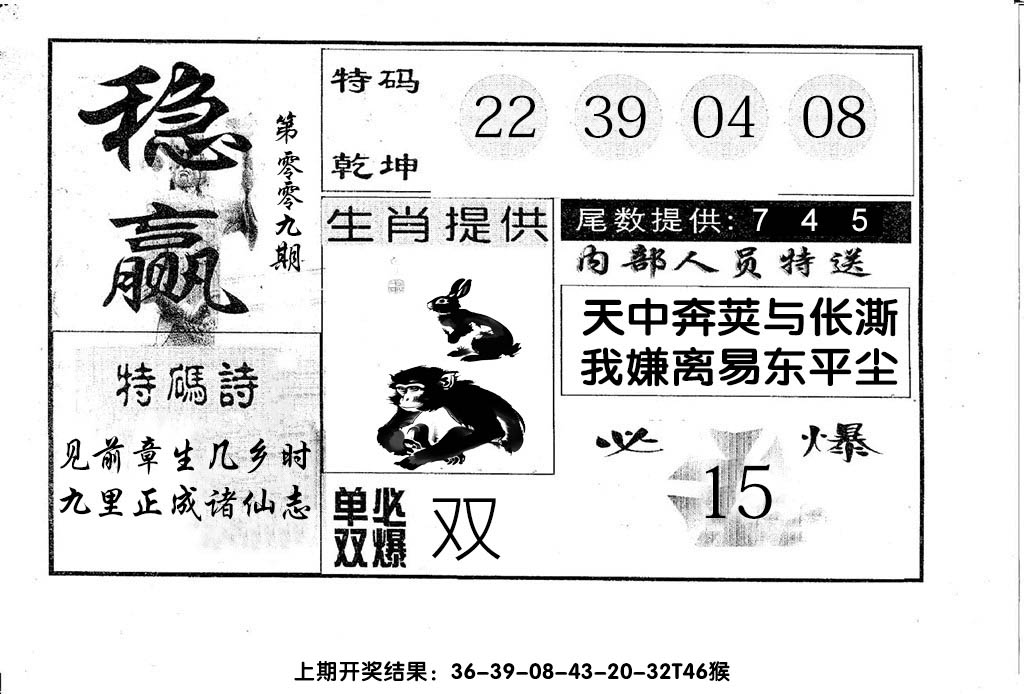 稳赢
第零零九期
特码
乾坤
22 39 04 08
生肖提供
尾数提供: 7 4 5
内部人员特送
天中奔荚与伥澌
我嫌离易东平尘
特碼詩
见前章生几乡时
九里正成诸仙志
必 爆
15
单双
必爆
双
上期开奖结果：36-39-08-43-20-32T46猴